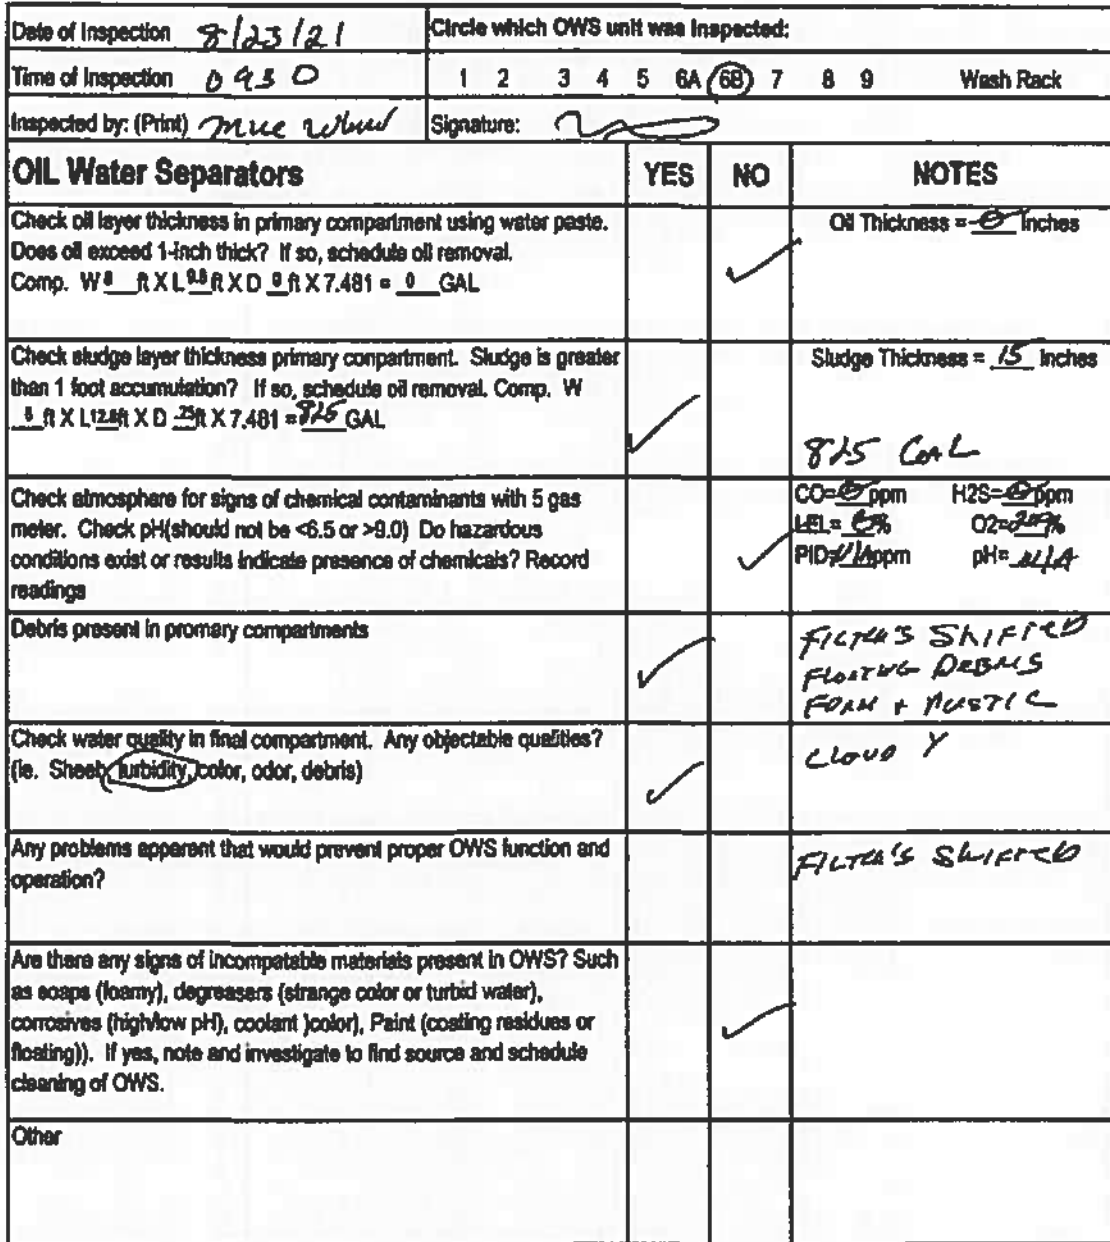 Date of Inspection 8/23/21 Circle which OWS unit was Inspected:
Time of Inspection 0930 1 2 3 4 5 6A 6B 7 8 9 Wash Rack
Inspected by: (Print) Signature:
OIL Water Separators YES NO NOTES
Check oil layer thickness in primary compartment using water paste. Oil Thickness = 0 Inches
Does oil exceed 1-inch thick? If so, schedule oil removal.
Comp. W ft X L ft X D 0 ft X 7.481 = 0 GAL
Check sludge layer thickness primary conpartment. Sludge is greater Sludge Thickness = 15 Inches
than 1 foot accumulation? If so, schedule oil removal. Comp. W
ft X L ft X D ft X 7.481 = 825 GAL
825 GAL
Check atmosphere for signs of chemical contaminants with 5 gas CO= 0 ppm H2S= 0 ppm
meter. Check pH(should not be <6.5 or >9.0) Do hazardous LEL= 0 % O2= %
conditions exist or results indicate presence of chemicals? Record PID= N/A ppm pH= N/A
readings
Debris present in promary compartments FILTER'S SHIFTED
FLOATING DEBRIS
FOAM + PLASTIC
Check water quality in final compartment. Any objectable qualities? CLOUDY
(ie. Sheen, turbidity, color, odor, debris)
Any problems apparent that would prevent proper OWS function and FILTER'S SHIFTED
operation?
Are there any signs of incompatable materials present in OWS? Such
as soaps (foamy), degreasers (strange color or turbid water),
corrosives (high/low pH), coolant )color), Paint (coating residues or
floating)). If yes, note and investigate to find source and schedule
cleaning of OWS.
Other